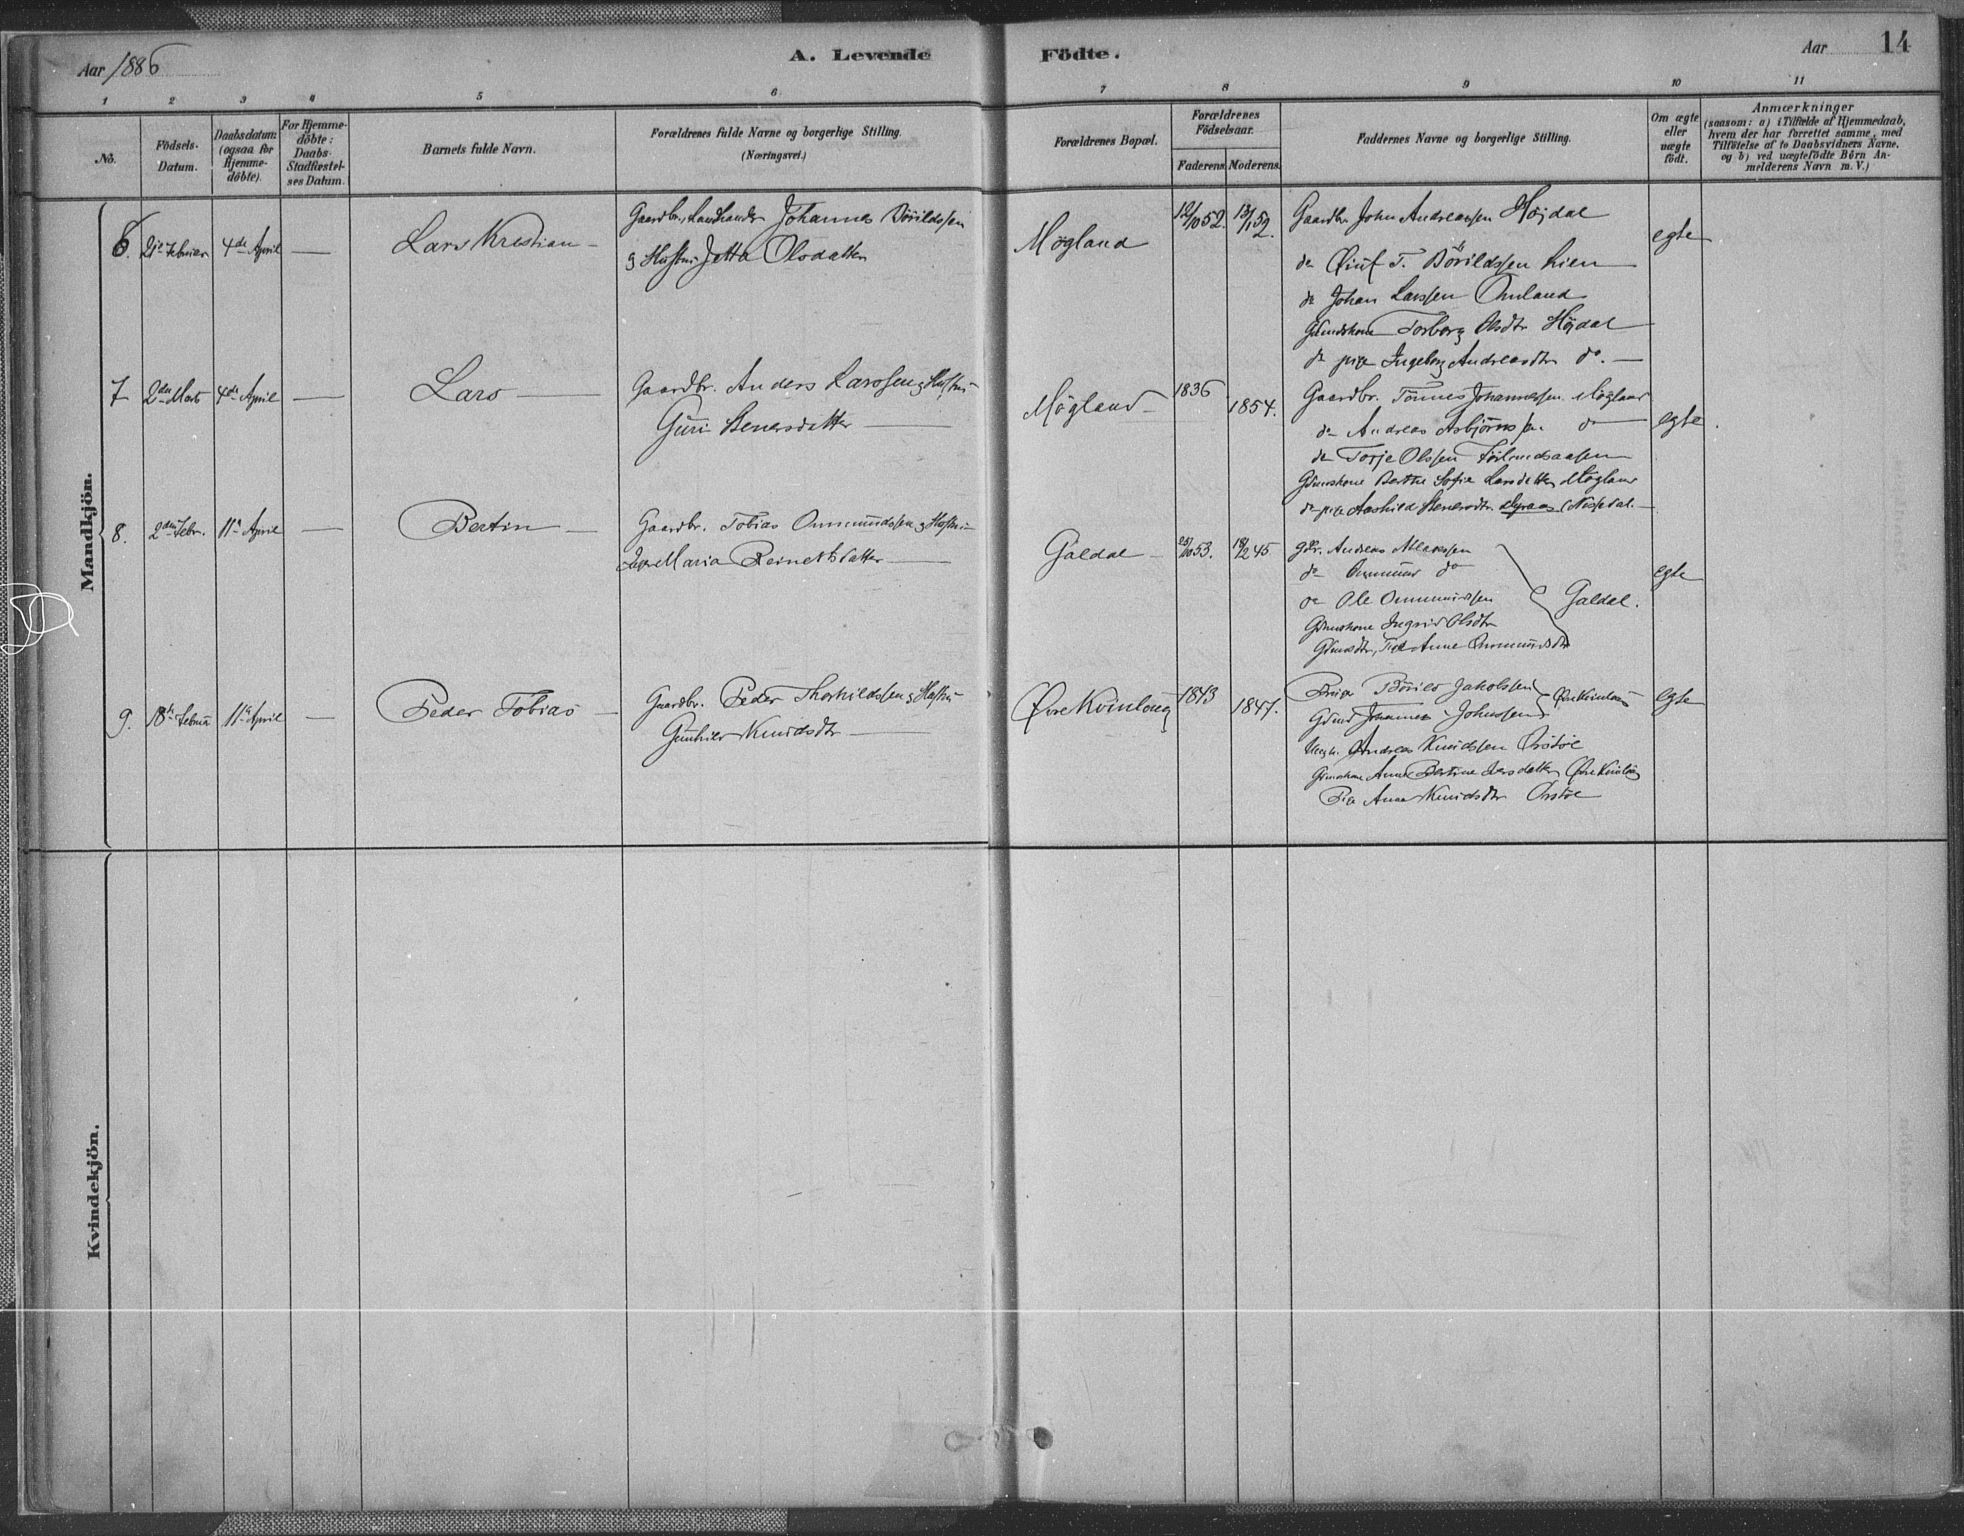 Aar 1886
A. Levende Födte.
Aar 14
1 2 3 4 5 6 7 8 9 10 11
No.
Födsels-Datum.
Daabsdatum (ogsaa for Hjemme-döbte).
For Hjemme-döbte: Daabs-Stadfæstel-ses Datum.
Barnets fulde Navn.
Forældrenes fulde Navne og borgerlige Stilling.
(Næringsvei.)
Forældrenes Bopæl.
Forældrenes Födselsaar.
Faderens Moderens
Faddernes Navne og borgerlige Stilling.
Om ægte eller uægte födt.
Anmærkninger
(saasom: a) i Tilfælde af Hjemmedaab,
hvem der har forrettet samme, med
Tilföielse af to Daabsvidners Navne,
og b) ved uægtefödte Börn An-
melderens Navn m. V.)
Mandkjön.
6. 4de April — Lars Kristian —
Gaardbr., Landhandr Johannes Börildssen
og Hustru Jetta Olsdatter
Mögland
12/10 52. 13/1 52.
Gaardbr John Andreassen Höjdal
do T. Börildssen Lien
do Johan Larssen Omland
Gdmdskone Torborg Olsdtr Höjdal
do pige Ingeborg Andreasdtr do. —
egte
7 2den Marts 4de April — Lars —
Gaardbr. Anders Larssen og Hustru
Guri Stenersdatter —
Mögland —
1836 1854.
Gaardbr. Tönnes Johannessen Mögland
do Andreas Asbjörnssen do
do Torje Olssen
Gdmdskone Berthe Sofie Larsdatter Mögland
do pige Aashild Stenersdtr.
egte.
8. 2den Febr. 11te April — Bertin —
Gaardbr. Tobias Ommundssen og Hustru
Maria Reinertsdatter —
Galdal —
25/10 53. 18/2 45
Gbr. Andreas
do Ommund do
do Ole Ommundssen
Gdmdskone Ingrid Olsdtr
Anne Ommundsdtr
Galdal.
egte
9. 18de Februar 11te April — Peder Tobias —
Gaardbr. Peder Thorkildssen og Hustru
Gunhild Knudsdtr —
Övre Kvinlaug
1843 1847.
Börild Jakobssen
Gdmd Johannes Johnssen
Övre Kvinlaug
Ungk. Andreas Knudssen
Gdmdskone Anne Bertine Övre Kvinlaug
Pige Anna Knudsdtr
egte
Kvindekjön.